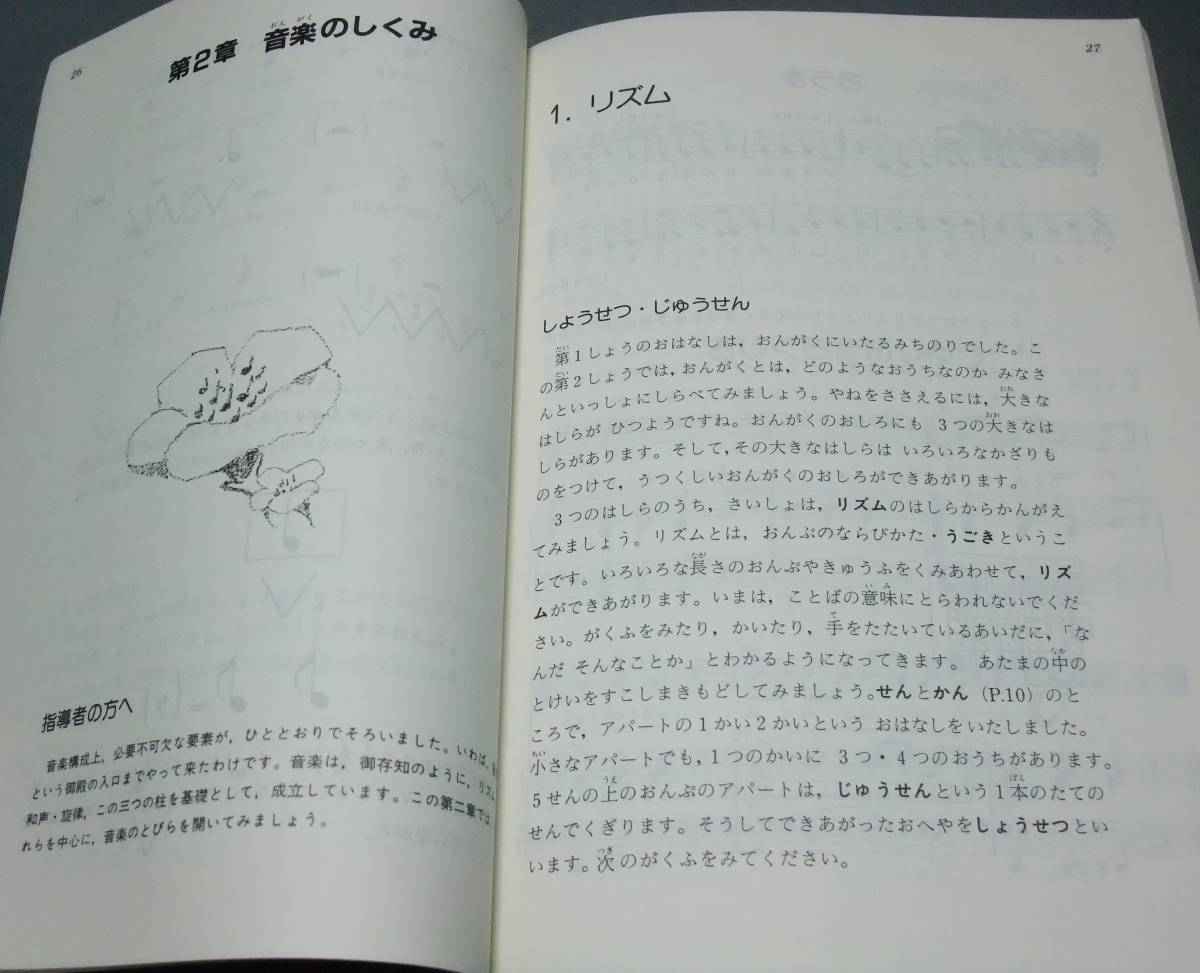 26
第2章 音楽のしくみ
おん がく
指導者の方へ
音楽構成上，必要不可欠な要素が，ひととおりでそろいました。いわば，
という御殿の入口までやって来たわけです。音楽は，御存知のように，リズ
和声・旋律，この三つの柱を基礎として，成立しています。この第二章では，
れらを中心に，音楽のとびらを開いてみましょう。
27
1. リズム
しようせつ・じゆうせん
第1しょうのおはなしは，おんがくにいたるみちのりでした。こ
の第2しょうでは，おんがくとは，どのようなおうちなのか みなさ
んといっしょにしらべてみましょう。やねをささえるには，大きな
はしらが ひつようですね。おんがくのおしろにも 3つの大きなは
しらがあります。そして，その大きなはしらは いろいろなかざりも
のをつけて，うつくしいおんがくのおしろができあがります。
3つのはしらのうち，さいしょは，リズムのはしらからかんがえ
てみましょう。リズムとは，おんぷのならびかた・うごきというこ
とです。いろいろな長さのおんぷやきゅうふをくみあわせて，リズ
ムができあがります。いまは，ことばの意味にとらわれないでくだ
さい。がくふをみたり，かいたり，手をたたいているあいだに，「な
んだ そんなことか」とわかるようになってきます。 あたまの中の
とけいをすこしまきもどしてみましょう。せんとかん（P.10）のと
ころで，アパートの1かい2かいという おはなしをいたしました。
小さなアパートでも，1つのかいに 3つ・4つのおうちがあります。
5せんの上のおんぷのアパートは，じゅうせんという1本のたての
せんでくぎります。そうしてできあがったおへやをしょうせつとい
います。次のがくふをみてください。